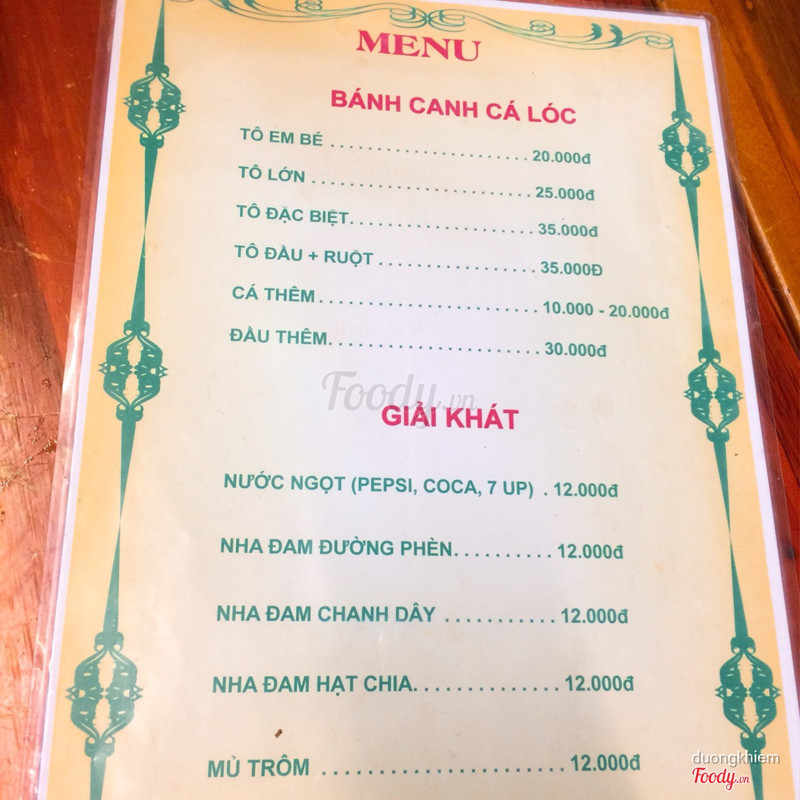 MENU
BÁNH CANH CÁ LÓC
TÔ EM BÉ . . . . . . . . . . . . . . . . . . . . . . 20.000đ
TÔ LỚN . . . . . . . . . . . . . . . . . . . . . . . . 25.000đ
TÔ ĐẶC BIỆT. . . . . . . . . . . . . . . . . . . . 35.000đ
TÔ ĐẦU + RUỘT . . . . . . . . . . . . . . . . . 35.000Đ
CÁ THÊM . . . . . . . . . . . . . . . . . . . . . . . . 10.000 - 20.000đ
ĐẦU THÊM. . . . . . . . . . . . . . . . . . . . . . . 30.000đ
Foody.vn
GIẢI KHÁT
NƯỚC NGỌT (PEPSI, COCA, 7 UP) . 12.000đ
NHA ĐAM ĐƯỜNG PHÈN. . . . . . . . . . 12.000đ
NHA ĐAM CHANH DÂY . . . . . . . . . . . 12.000đ
NHA ĐAM HẠT CHIA. . . . . . . . . . . . . . 12.000đ
MỦ TRÔM . . . . . . . . . . . . . . . . . . . . . . 12.000đ
duongkhiem
Foody.vn